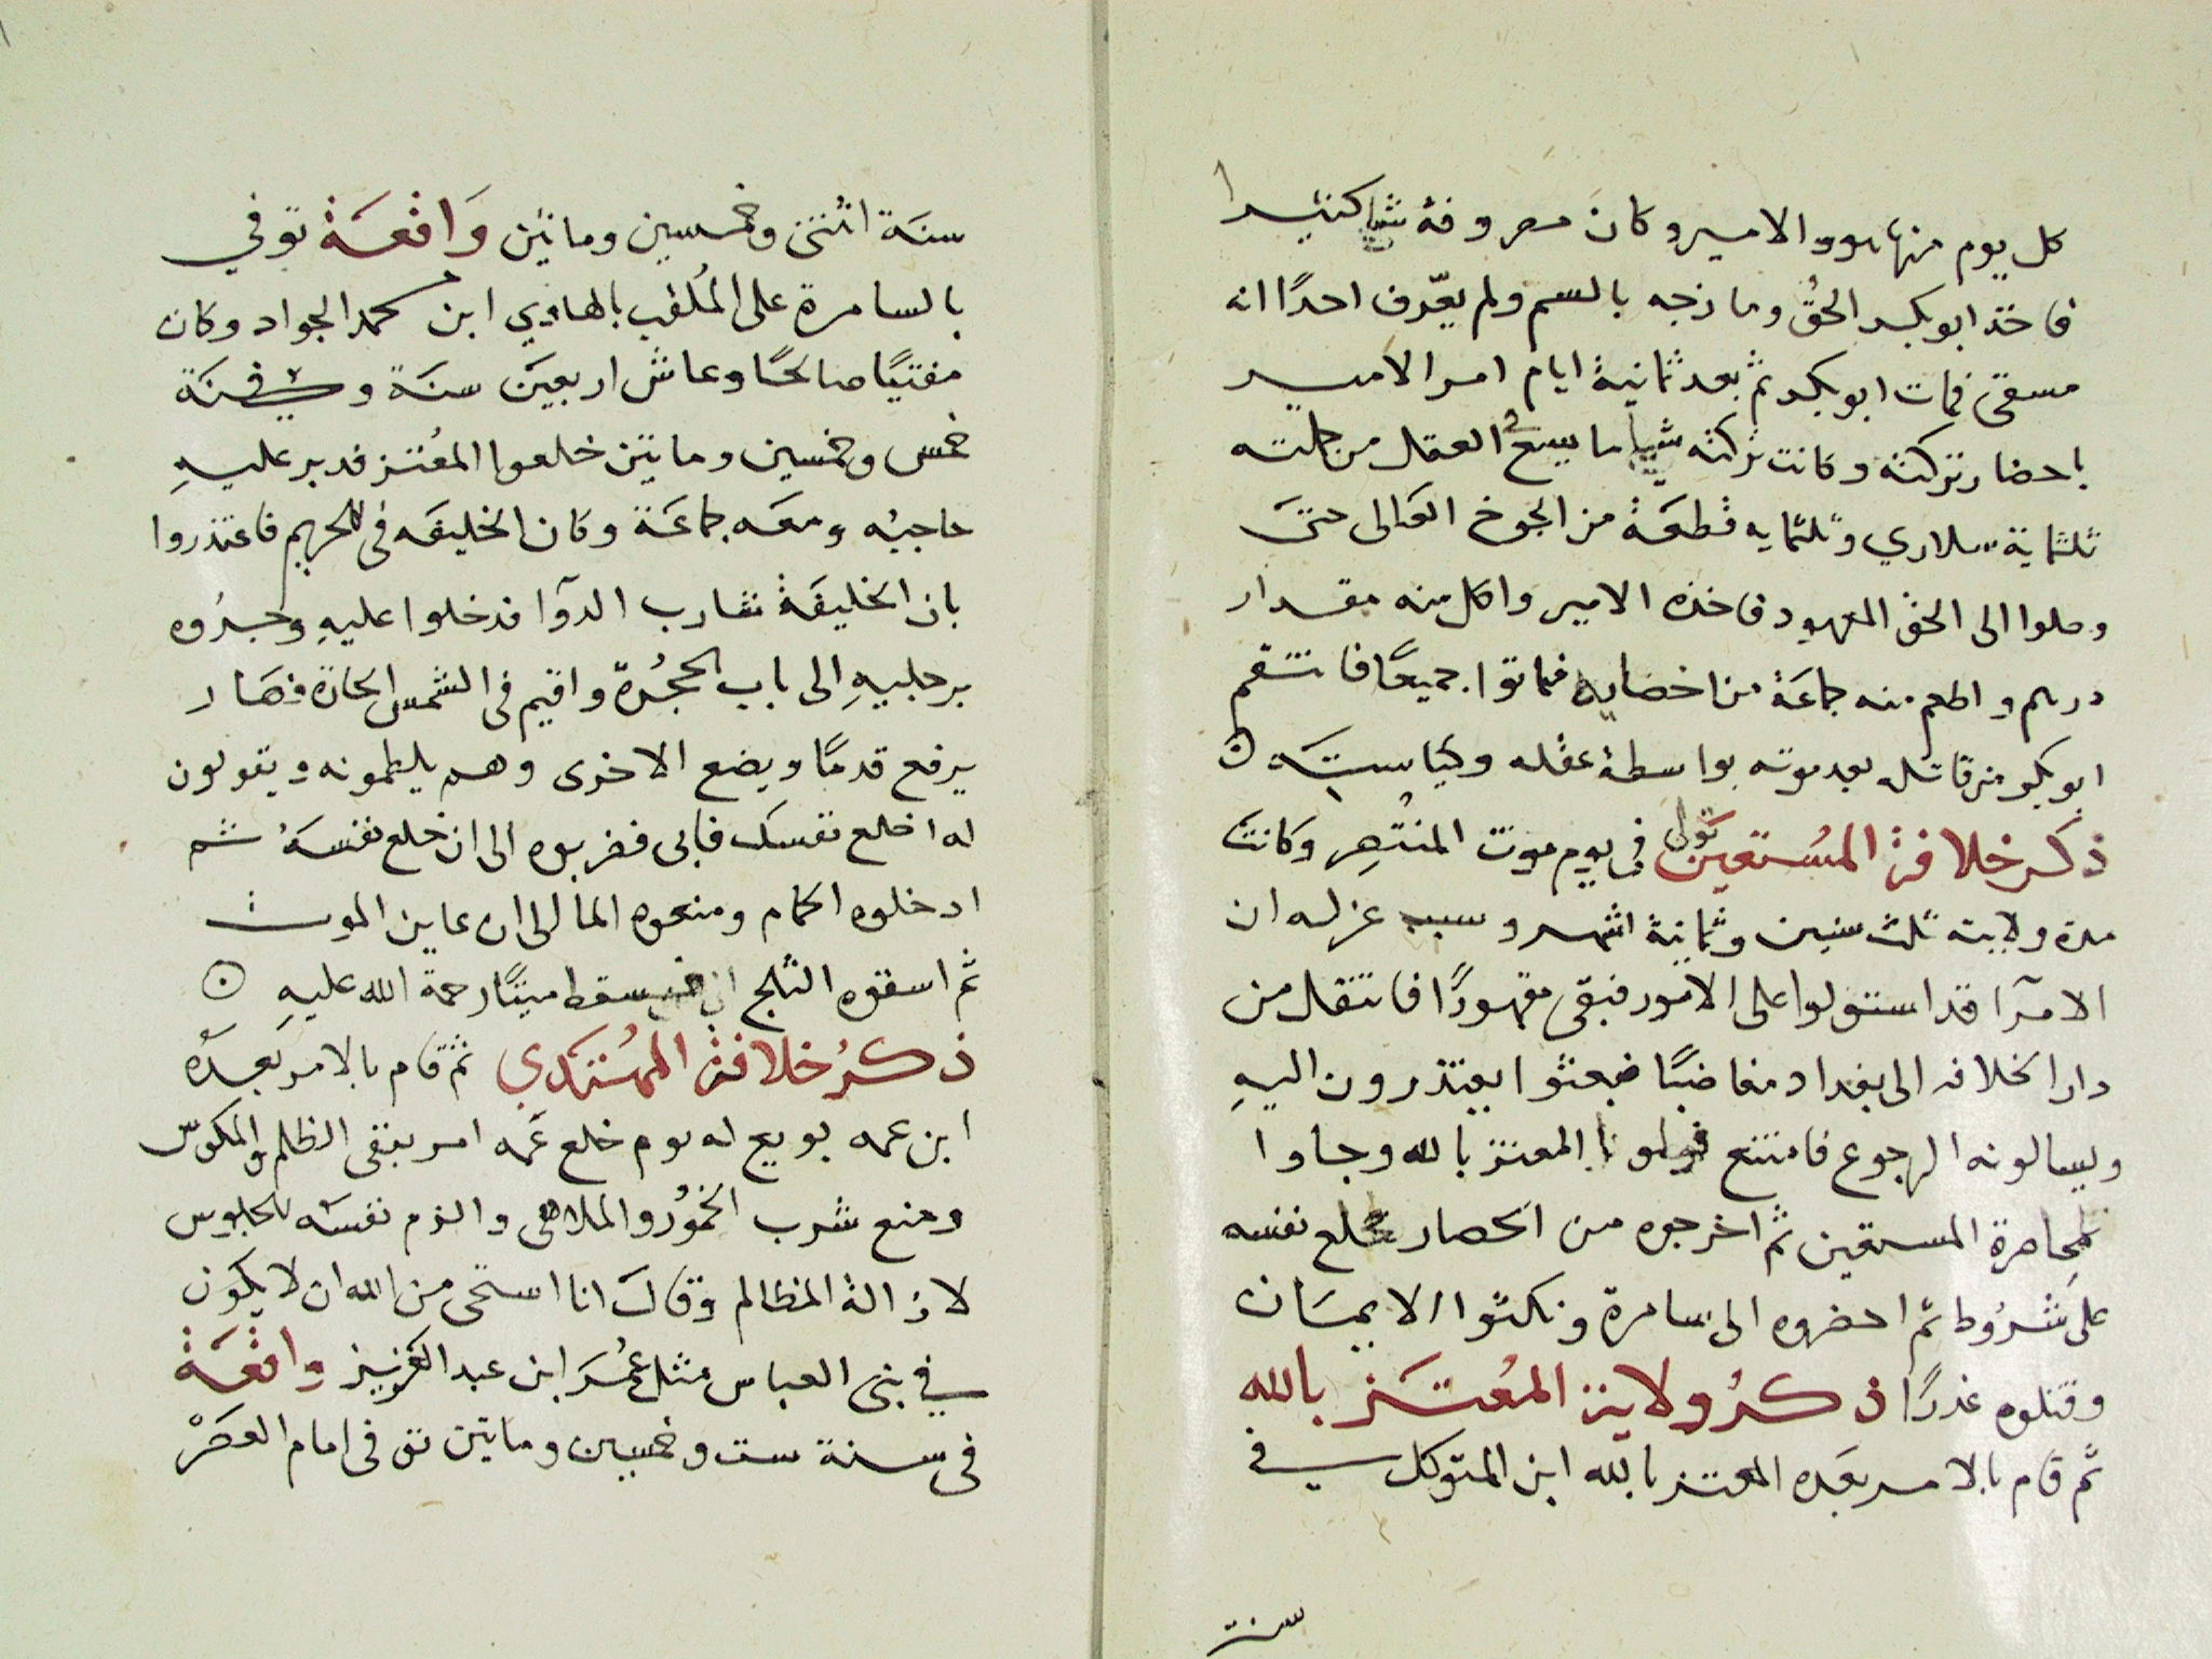 كل يوم منها هو والامير وكان مصروفة شيا كثيرا
فاخذ ابو بكر الحق ومازجه بالسم ولم يعّرف احدًا انه
مسقى فمات ابو بكر ثم بعد ثمانية ايام امر الامير
باحضار تركته وكانت تركته شيا ما يسعُ العقل من جملته
ثلثماية سلاري وثلثمايه قطعَة من الجوخ العَالى حتىَ
وصلوا الى الحق المعهود فاخذه الامير واكل منه مقدار
درهم واطعم منه جماعَة من اخصايه فماتوا جميعًا فانتقم
ابو بكر من قاتله بعد موته بواسطة عقله وكياسته
ذكر خلافة المُستعين تولى فى يوم موت المنتُصِر وكانت
مدة ولايته ثلث سنين وثمانية اشهر وسبب عزله ان
الامرآ قد استولوا على الامور فبقى مقهورًا فانتقل من
دار الخلافه الى بغداد مغاضبًا فبعثوا يعتذرون اليهِ
ويسالونه الرجوع فامتنع المعتز بالله وجاوا
لمحاصرة المستعين ثم اخرجوه من الحصار خلع نفسه
على شرُوط ثم احضروه الى سامرة ونكثوا الايمَان
وقتلوه غدرًا ذكرُ ولاية المُعتَز بالله
ثم قام بالامر بعَده المعتز بالله ابن المتوكل في
سنة
سنَة اثنتى وخمسين وماتين وَاقعَة توفي
بالسامرة على المُلقب بالهادي ابن محمد الجواد وكان
مفتيًا صالحًا وعاش اربعينَ سنَة وفي سنَة
خمس وخمسين وماتين خلعوا المعُتز فدبر عليهِ
حاجبُه ومعَه جماعَة وكان الخليفَه فى الحريم فاعتذروا
بان الخليفَة شارب الدوآ فدخلوا عليهِ وجرُوه
برجليهِ الى باب الحجُرة واقيم فى الشمس الحارة فصَار
يرفع قدمًا ويضع الاخرى وهم يلطمونه ويقولون
له اخلع نفسك فابى فضربوه الى ان خلع نفسَهُ ثم
ادخلوه الحمام ومنعوه الما الى ان عاين الموت
ثم اسقوه الثلج سقط ميتًا رحمة الله عليهِ
ذكرُ خلافة المهُتَدي ثم قام بالامر بَعدَهُ
ابن عمه بويع له يوم خلع عَمه امر بنفى الظلم والمكوس
ومنع شرب الخمُور والملاهى والزم نفسَه الجلوس
لازالة المظالم وقال انا استحى من الله ان لا يكوَن
في بنى العباس مثل عُمَر ابن عبد العَزيز واقعَة
فى سنة ست وخمسين وماتين توفى امام العصَرْ